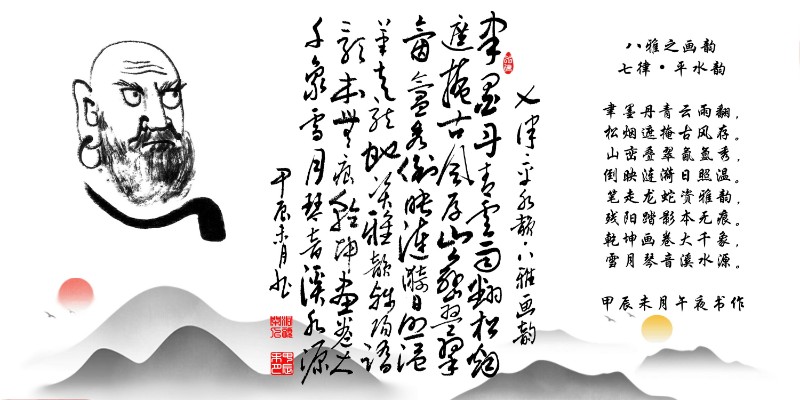 八雅之画韵
七律·平水韵
聿墨丹青云雨翻，
松烟遮掩古风存。
山峦叠翠氤氲秀，
倒映涟漪日照温。
笔走龙蛇资雅韵，
残阳踏影本无痕。
乾坤画卷大千象，
雪月琴音溪水源。
甲辰未月午夜书作
七律平水韵八雅画韵
聿墨丹青云雨翻松烟
遮掩古风存山峦叠翠
氤氲秀倒映涟漪日照温
笔走龙蛇资雅韵残阳踏
影本无痕乾坤画卷大
千象雪月琴音溪水源
甲辰未月